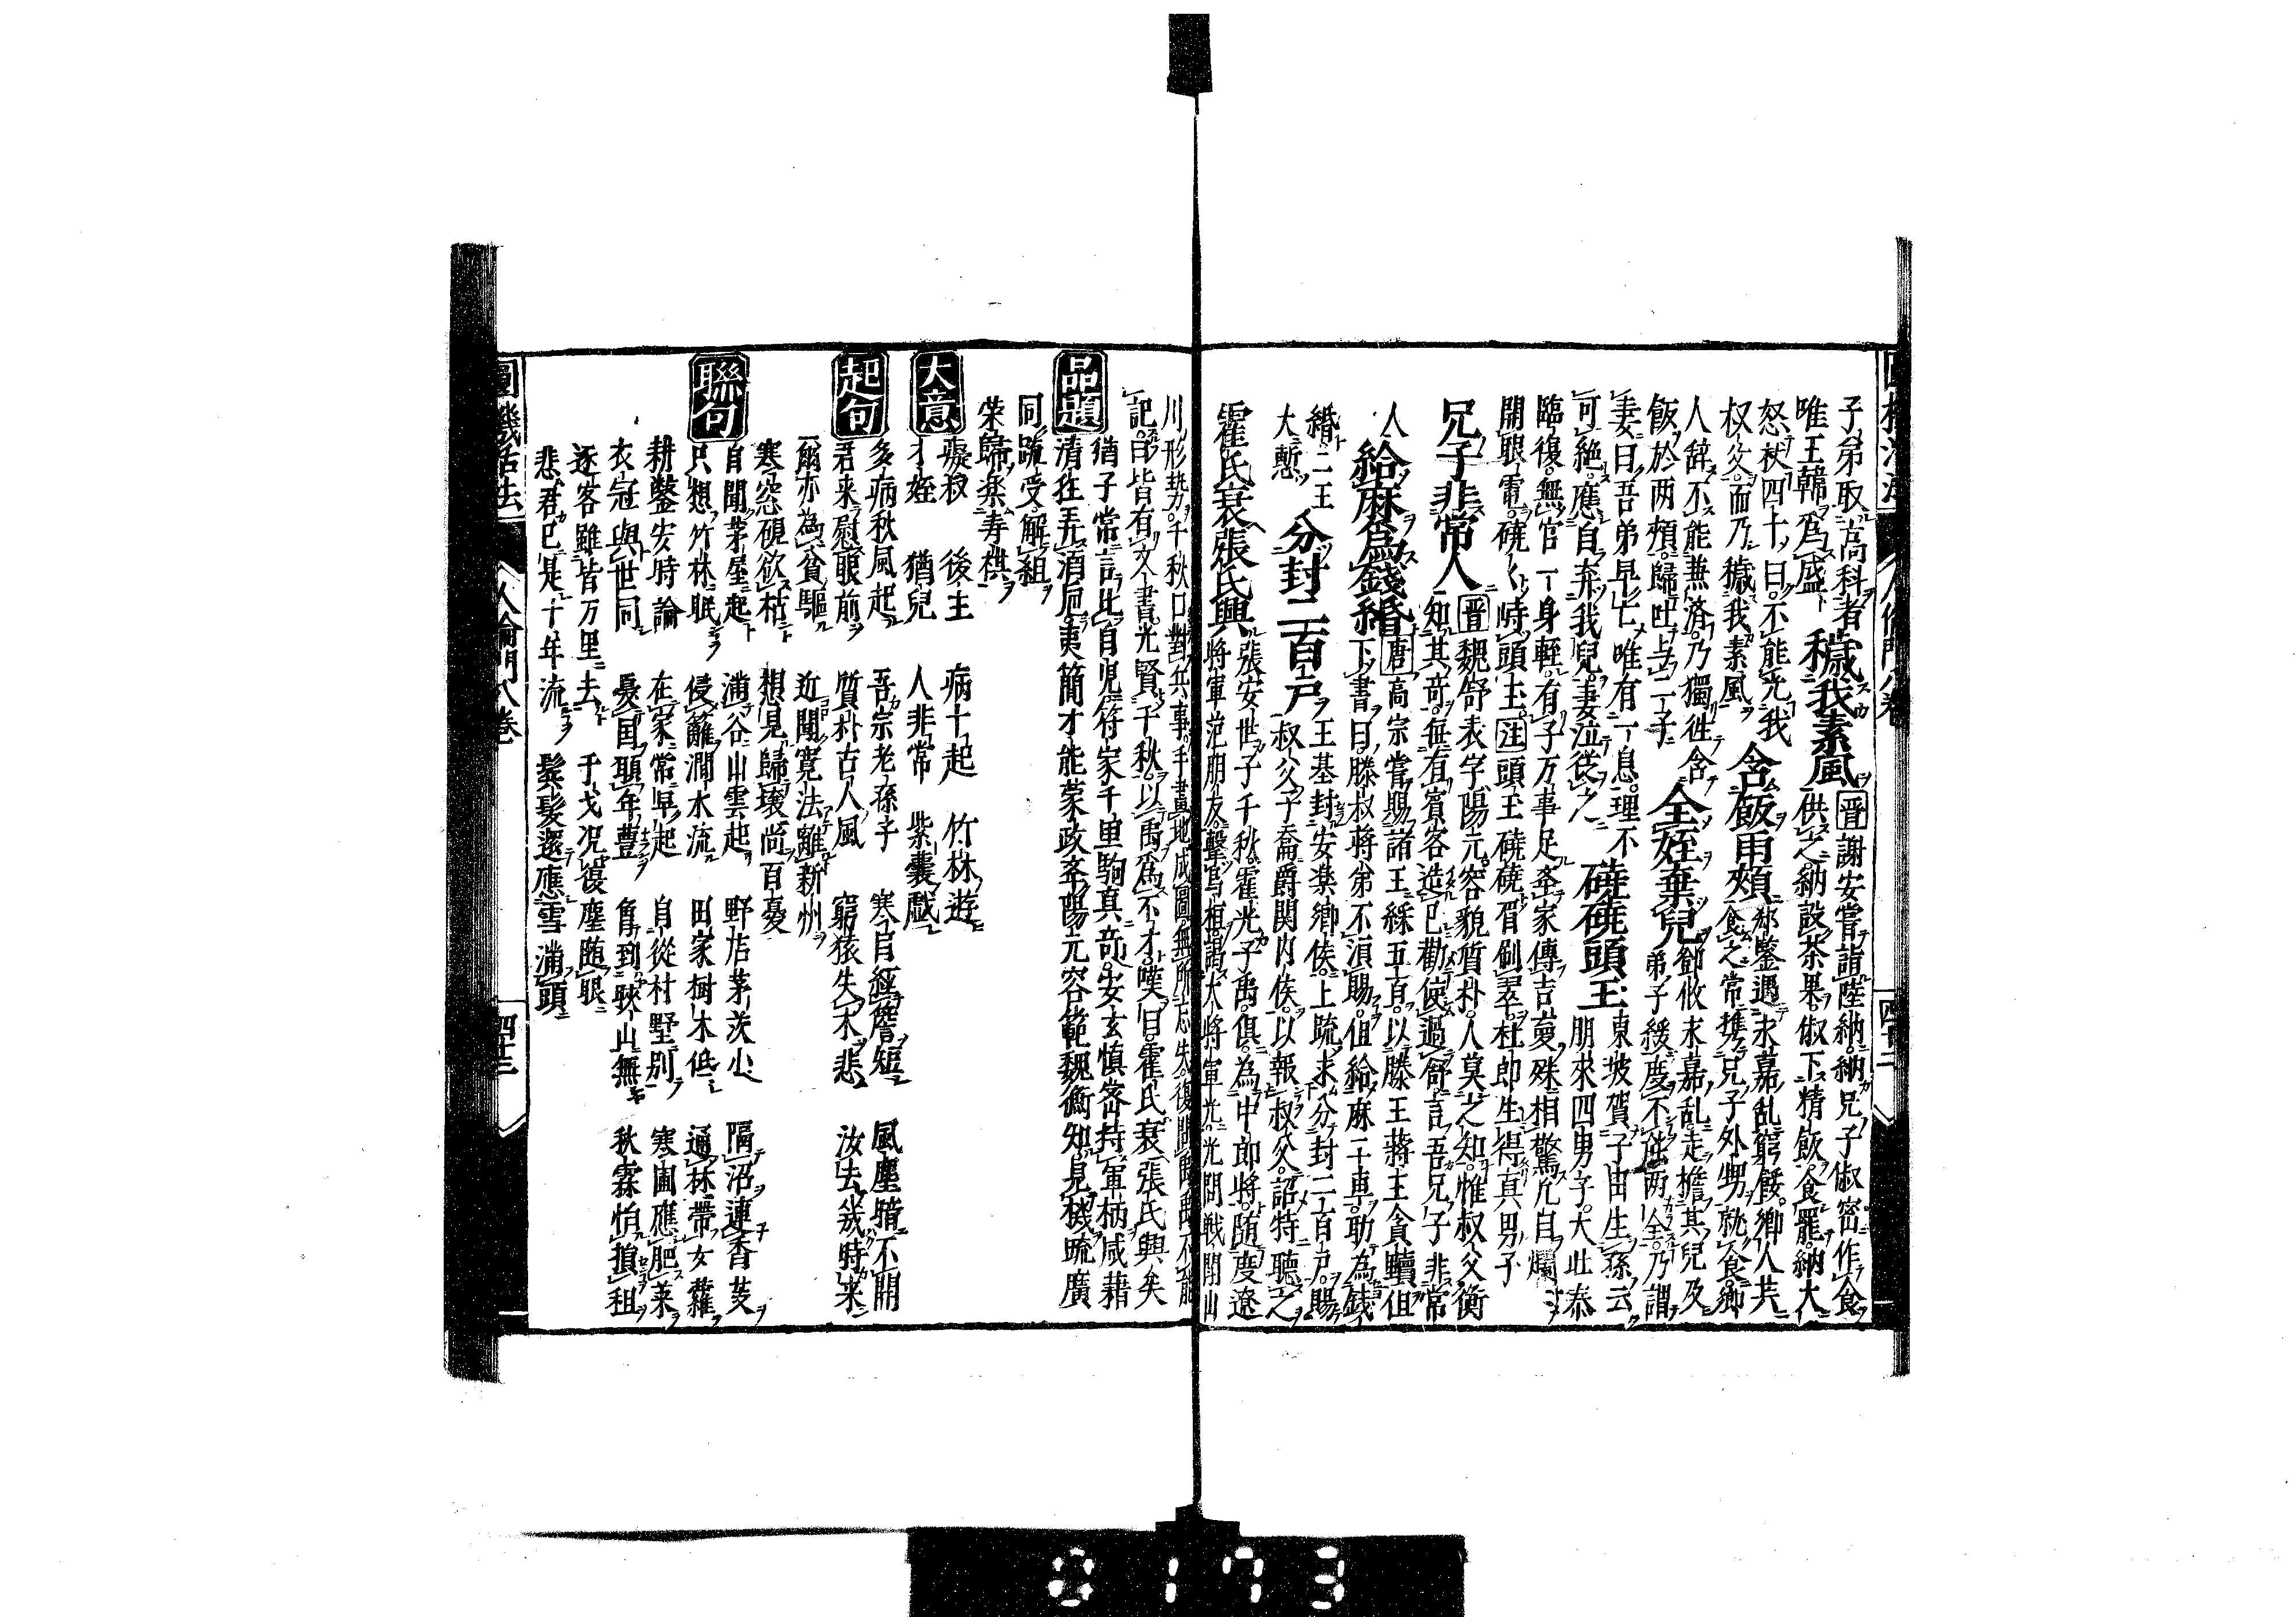 子弟取高科者
唯王韓爲盛 穢我素風 晋謝安甞詣陸納納兄子俶密作食
供之納設茶果俶下精飲食罷納大
怒杖四十日不能光我
叔父而乃穢我素風 含飯両頰 郗鑒遇永嘉乱窮餒鄉人共
食之常携兄子外甥就食鄉
人辞不能兼済乃獨徃含
飯於两頰歸吐与二子 全姪棄兒 鄧攸永嘉乱走擔其兒及
弟子綏度不能两全乃謂
妻曰吾弟早亡唯有一息理不
可絶應自弃我兒妻泣從之 磽磽頭玉 東坡賀子由生孫云
朋来四男子大壯泰
臨復無官一身軽有子万事足喜家傳吉夢殊相驚兀自爛
開眼電磽〱峙頭玉 注頭玉磽磽眉刷翠杜郎生得真男子
兄子非常人 晋魏舒表字陽元容貌質朴人莫之知惟叔父衡
知其竒每有賓客造已勸使過舒言吾兄子非常
人 給麻爲錢緡 唐高宗甞賜諸王綵五百以滕王蒋王貪黷但
下書曰滕叔蒋弟不須賜但給麻二車助為錢
緡二王
大慙 分封二百戸 王基封安楽鄉侯上疏求分封二百戸賜
叔父子喬爵関内侯以報叔父詔特聽之
霍氏衰張氏興 張安世子千秋霍光子禹俱為中郎將随度遼
将軍范朋友擊烏桓謁大将軍光光問戦閗山
川形勢千秋口對兵事手畫地成圖無所忘失復問禹禹不能
記曰皆有文書光賢千秋以禹爲不才嘆曰霍氏衰張氏興矣
品題 猶子常言比自児符家千里駒真竒安玄慎峇持軍柄咸藉
清狂弄酒巵夷簡才能蒙政委陽元容範魏衡知見機疏廣
同疏受解組
荣歸楽寿祺
大意 癡叔 後主 病十起 竹林遊
才姪 猶兒 人非常 紫嚢戲
起句 多病秋風起 吾宗老孫子 寒自經簷短 風塵揩不開
君来慰眼前 質朴古人風 窮猿失木悲 汝去幾時来
爾亦為貧驅 近聞寛法離新州
寒窓硯欲枯 想見歸懐尚百憂
聯句 自聞茅屋起 滿谷山雲起 野店茅茨小 隔沼連香芰
只想竹林眠 侵籬澗水流 田家樹木低 通林帶女蘿
耕鑿安時論 在家常早起 自從村墅別 寒圃應肥菜
衣冠與世同 憂国頭年豊 角到峡山無 秋霖怕損租
逐客雖皆万里去 于戈况復塵随眼
悲君已是十年流 鬢髪還應雪滿頭
圓機活法 人倫門八巻 四十三